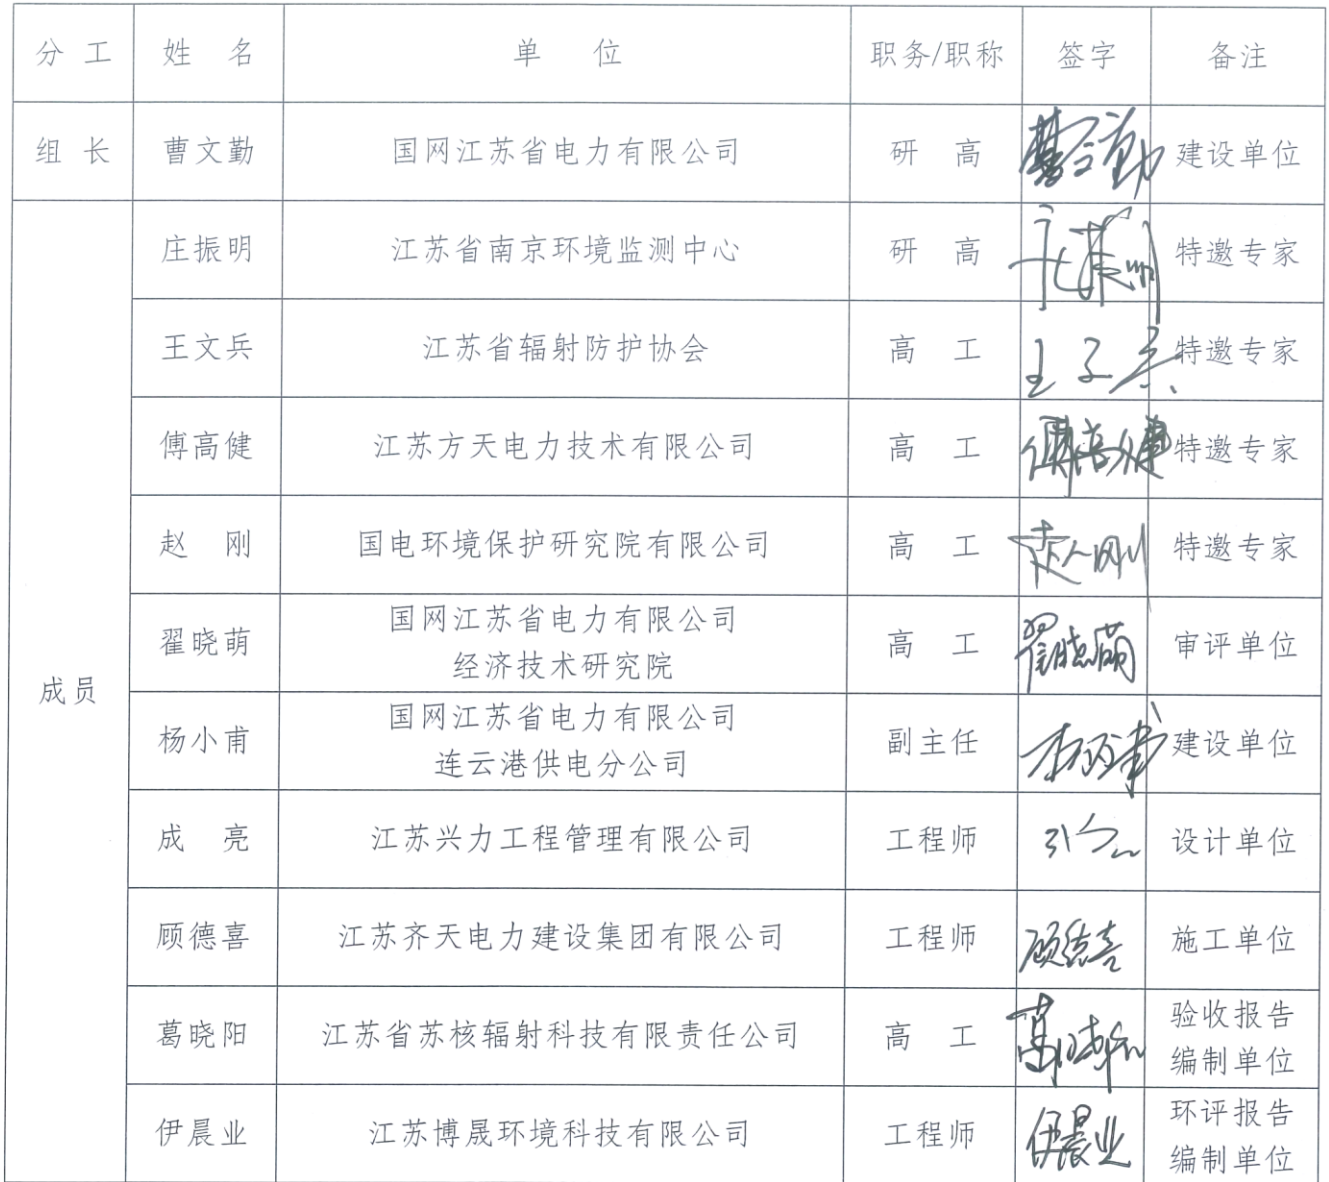 分 工 姓 名 单 位 职务/职称 签字 备注
组 长 曹文勤 国网江苏省电力有限公司 研 高 曹文勤 建设单位
成员
庄振明 江苏省南京环境监测中心 研 高 庄振明 特邀专家
王文兵 江苏省辐射防护协会 高 工 王文兵 特邀专家
傅高健 江苏方天电力技术有限公司 高 工 傅高健 特邀专家
赵 刚 国电环境保护研究院有限公司 高 工 赵刚 特邀专家
翟晓萌 国网江苏省电力有限公司
经济技术研究院 高 工 翟晓萌 审评单位
杨小甫 国网江苏省电力有限公司
连云港供电分公司 副主任 杨小甫 建设单位
成 亮 江苏兴力工程管理有限公司 工程师 设计单位
顾德喜 江苏齐天电力建设集团有限公司 工程师 顾德喜 施工单位
葛晓阳 江苏省苏核辐射科技有限责任公司 高 工 葛晓阳 验收报告
编制单位
伊晨业 江苏博晟环境科技有限公司 工程师 伊晨业 环评报告
编制单位